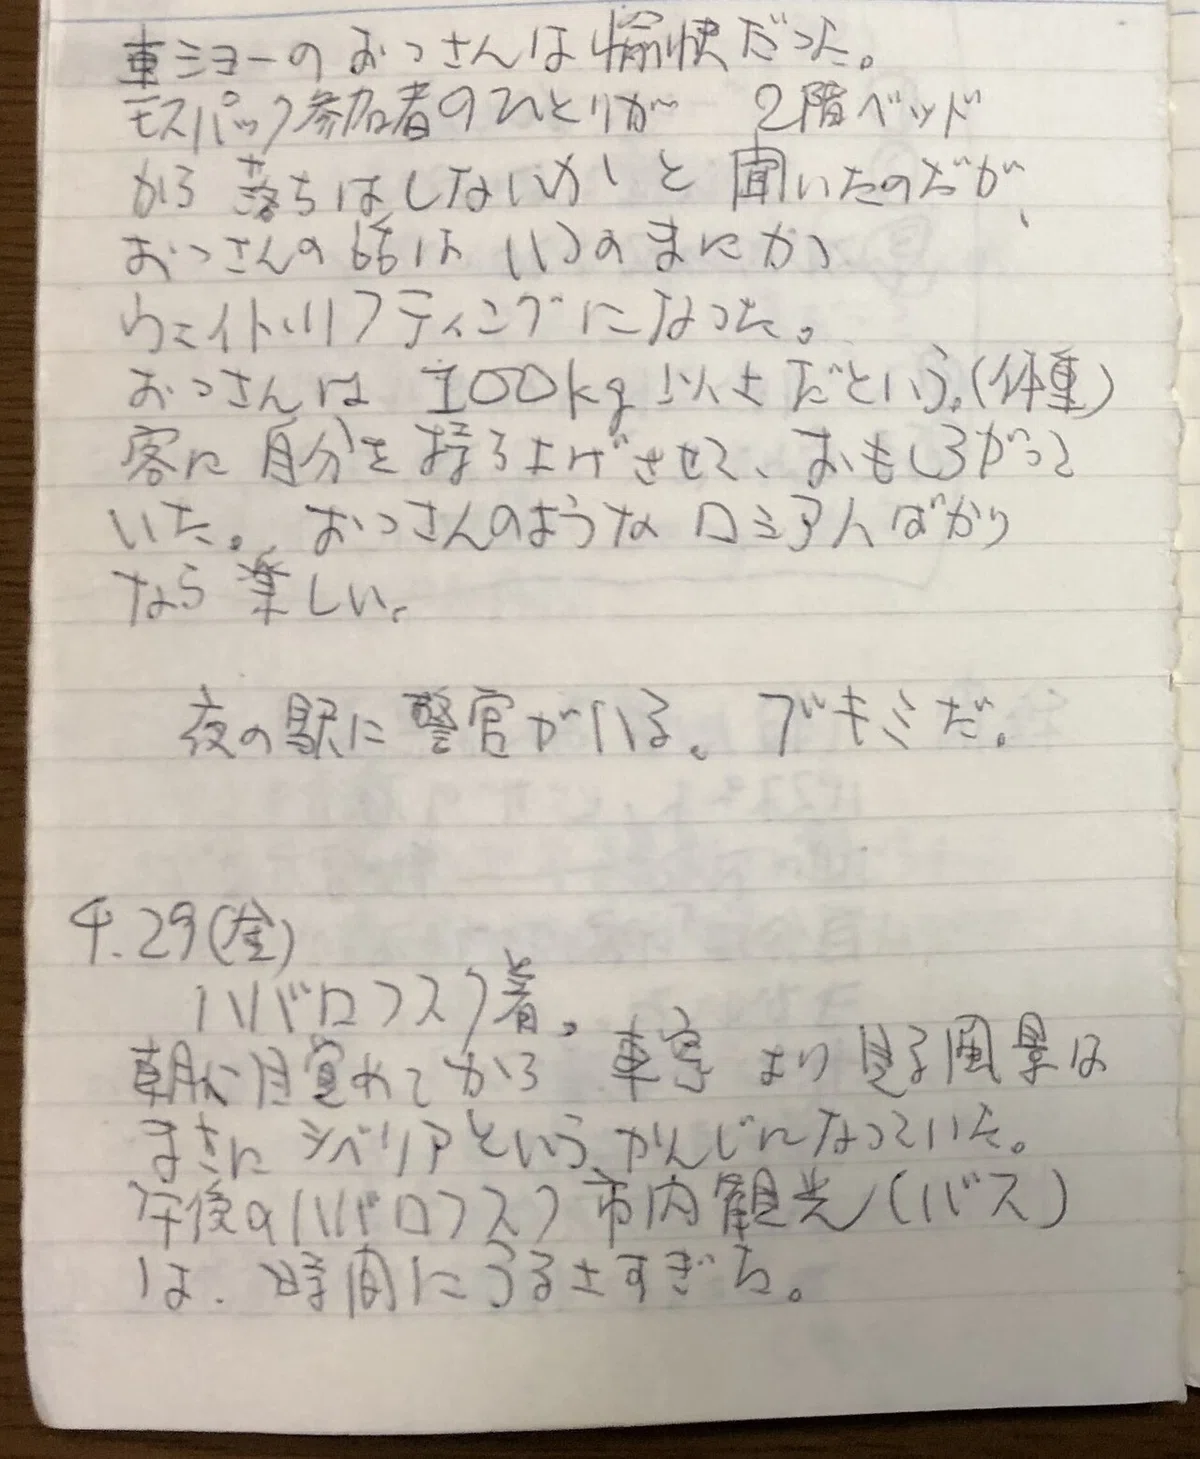 車ショーのおっさんは愉快だった。
モスパック参加者のひとりが 2階ベッド
から落ちはしないかと聞いたのだが、
おっさんの話はいつのまにか
ウェイトリフティングになった。
おっさんは100kg以上だという。(体重)
客に自分を持ち上げさせて、おもしろがって
いた。おっさんのようなロシア人ばかり
なら楽しい。
夜の駅に警官がいる。ブキミだ。
4.29(金)
ハバロフスク着。
朝に目覚めてから 車窓より見る風景は
まさにシベリアというかんじになっていた。
午後のハバロフスク市内観光(バス)
は、時間にうるさすぎた。